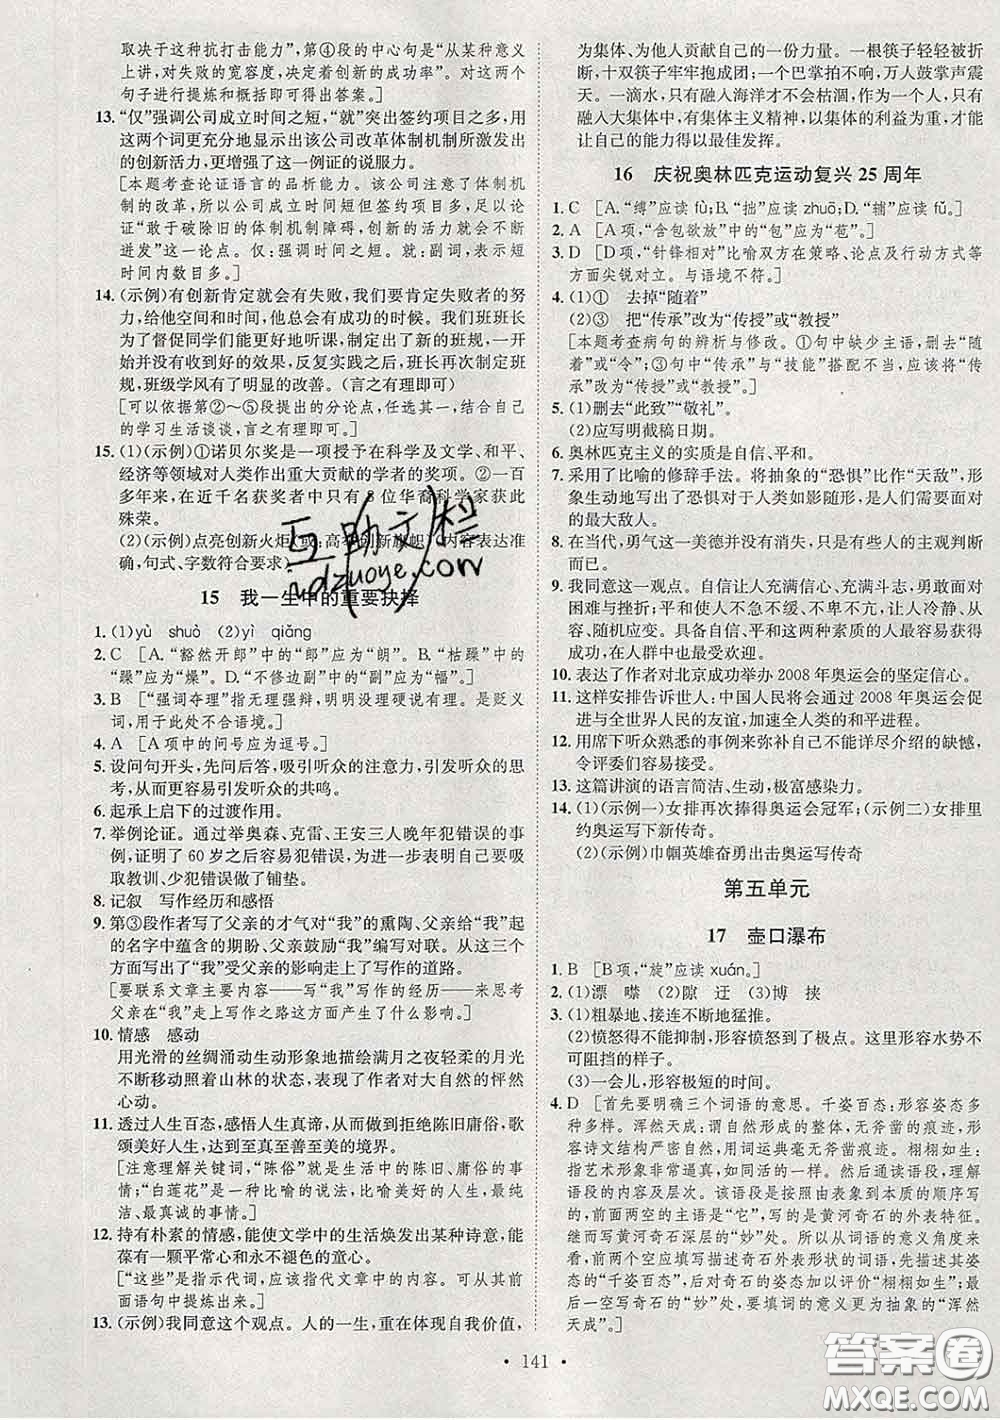 取决于这种抗打击能力”,第④段的中心句是“从某种意义
上讲,对失败的宽容度,决定着创新的成功率”。对这两个
句子进行提炼和概括即可得出答案。]
13.“仅”强调公司成立时间之短,“就”突出签约项目之多,用
这两个词更充分地显示出该公司改革体制机制所激发出
的创新活力,更增强了这一例证的说服力。
[本题考查论证语言的品析能力。该公司注意了体制机
制的改革,所以公司成立时间短但签约项目多,足以论
证“敢于破除旧的体制机制障碍,创新的活力就会不断
迸发”这一论点。仅:强调时间之短;就:副词,表示短
时间内数目多。]
14.(示例)有创新肯定就会有失败,我们要肯定失败者的努
力,给他空间和时间,他总会有成功的时候。我们班班长
为了督促同学们能更好地听课,制定出了新的班规,一开
始并没有收到好的效果,反复实践之后,班长再次制定班
规,班级学风有了明显的改善。(言之有理即可)
[可以依据第②～⑤段提出的分论点,任选其一,结合自己
的学习生活谈谈,言之有理即可。]
15.(1)(示例)①诺贝尔奖是一项授予在科学及文学、和平、
经济等领域对人类作出重大贡献的学者的奖项。②一百
多年来,在近千名获奖者中只有8位华裔科学家获此
殊荣。
(2)(示例)点亮创新火炬(或:高举创新旗帜)(内容表达准
确,句式、字数符合要求)
15 我一生中的重要抉择
1.(1)yù shuò (2)yì qiǎng
2. C [A.“豁然开郎”中的“郎”应为“朗”。B.“枯躁”中的
“躁”应为“燥”。D.“不修边副”中的“副”应为“幅”。]
3. B [“强词夺理”指无理强辩,明明没理硬说有理。是贬义
词,用于此处不合语境。]
4. A [A项中的问号应为逗号。]
5.设问句开头,先问后答,吸引听众的注意力,引发听众的思
考,从而更容易引发听众的共鸣。
6.起承上启下的过渡作用。
7.举例论证。通过举奥森、克雷、王安三人晚年犯错误的事
例,证明了60岁之后容易犯错误,为进一步表明自己要吸
取教训、少犯错误做了铺垫。
8.记叙 写作经历和感悟
9.第③段作者写了父亲的才气对“我”的熏陶、父亲给“我”起
的名字中蕴含的期盼、父亲鼓励“我”写对联。从这三个
方面写出了“我”受父亲的影响走上了写作的道路。
[要联系文章主要内容——写“我”写作的经历——来思考
父亲在“我”走上写作之路这方面产生了什么影响。]
10.情感 感动
用光滑的丝绸涌动生动形象地描绘满月之夜轻柔的月光
不断移动照着山林的状态,表现了作者对大自然的怦然
心动。
11.透过人生百态,感悟人生真谛,从而做到拒绝陈旧庸俗,歌
颂美好人生,达到至真至善至美的境界。
[注意理解关键词,“陈俗”就是生活中的陈旧、庸俗的事
情;“白莲花”是一种比喻的说法,比喻美好的人生,最纯
洁、最真诚的事情。]
12.持有朴素的情感,能使文学中的生活焕发出某种诗意,能
葆有一颗平常心和永不褪色的童心。
[“这些”是指示代词,应该指代文章中的内容,可以从其前
面语句中提炼出来。]
13.(示例)我同意这个观点。人的一生,重在体现自我价值,
为集体、为他人贡献自己的一份力量。一根筷子轻轻被折
断,十双筷子牢牢抱成团;一个巴掌拍不响,万人鼓掌声震
天。一滴水,只有融入海洋才不会枯涸,作为一个人,只有
融入大集体中,有集体主义精神,以集体的利益为重,才能
让自己的能力得以最佳发挥。
16 庆祝奥林匹克运动复兴25周年
1. C [A.“缚”应读fù;B.“拙”应读zhuō;D.“辅”应读fǔ。]
2. A [A项,“含包欲放”中的“包”应为“苞”。]
3. D [D项,“针锋相对”比喻双方在策略、论点及行动方式等
方面尖锐对立。与语境不符。]
4.(1)① 去掉“随着”
(2)③ 把“传承”改为“传授”或“教授”
[本题考查病句的辨析与修改。①句中缺少主语,删去“随
着”或“令”;③句中“传承”与“技能”搭配不当,应将“传
承”改为“传授”或“教授”。]
5.(1)删去“此致”“敬礼”。
(2)应写明截稿日期。
6.奥林匹克主义的实质是自信、平和。
7.采用了比喻的修辞手法。将抽象的“恐惧”比作“天敌”,形
象生动地写出了恐惧对于人类如影随形,是人们需要面对
的最大敌人。
8.在当代,勇气这一美德并没有消失,只是有些人的主观判断
而已。
9.我同意这一观点。自信让人充满信心、充满斗志,勇于面对
困难与挫折;平和使人不急不缓、不卑不亢,让人冷静、从
容、随机应变。具备自信、平和这两种素质的人最容易获得
成功,在人群中也最受欢迎。
10.表达了作者对北京成功举办2008年奥运会的坚定信心。
11.这样安排告诉世人:中国人民将会通过2008年奥运会促
进与全世界人民的友谊,加速全人类的和平进程。
12.用席下听众熟悉的事例来弥补自己不能详尽介绍的缺憾,
令评委们容易接受。
13.这篇讲演的语言简洁、生动,极富感染力。
14.(1)(示例一)女排再次捧得奥运会冠军;(示例二)女排里
约奥运写下新传奇。
(2)(示例)巾帼英雄奋勇出击奥运写传奇
第五单元
17 壶口瀑布
1. B [B项,“旋”应读xuán。]
2.(1)漂 噤 (2)隙 迂 (3)博 挟
3.(1)粗暴地、接连不断地猛推。
(2)愤怒得不能抑制,形容愤怒到了极点。这里形容水势不
可阻挡的样子。
(3)一会儿,形容极短的时间。
4. D [首先要明确三个词语的意思。千姿百态:形容姿态多
种多样。浑然天成:谓自然形成的整体,无斧凿的痕迹,形
容诗文结构严密自然,用词运典毫无斧凿痕迹。栩栩如生:
指艺术形象非常逼真,如同活的一样。然后通读语段,理解
语段的内容及层次。该语段是由表象到本质的顺序写
的,前面两空的主语是“它”,写的是黄河奇石的外表特征。
继而写黄河奇石深层的“妙”处。所以从词语的意义角度来
看,前面两个空应填写描述奇石外表形状的词语,首先描述它
的“千姿百态”,后对奇石的姿态加以评价“栩栩如生”;最
后一空写奇石的“妙”处,要填词的意义更为抽象的“浑然
天成”。]
· 141 ·
互助文栏
hdzuoye.com
答案圈
MXQE.COM